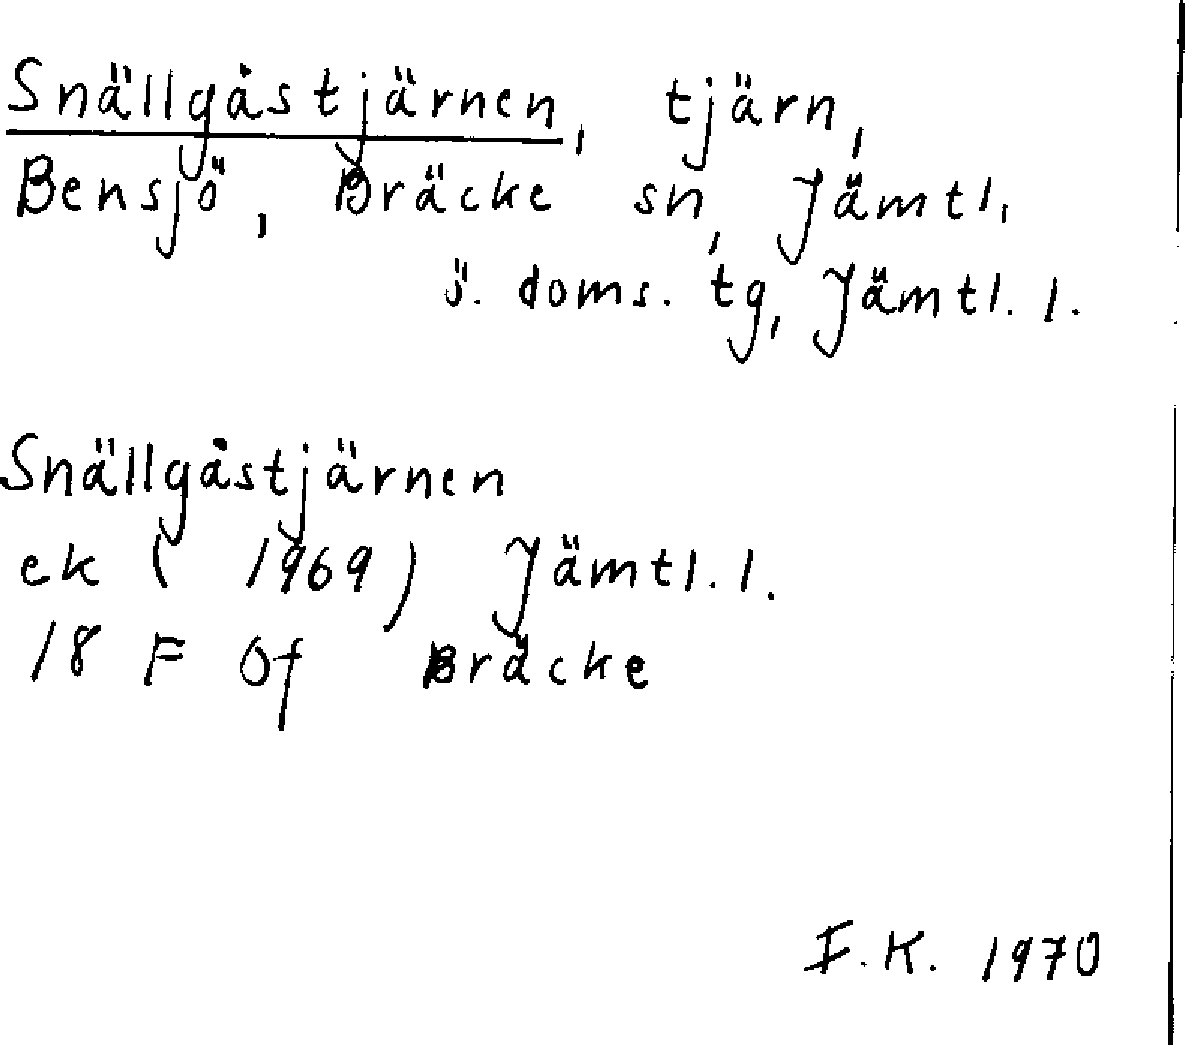 Snällgåstjärnen, tjärn,
Bensjö, Bräcke sn, Jämtl.
ö. doms. tg, Jämtl. l.
Snällgåstjärnen
ek ( 1969) Jämtl. l.
18 F 0f Bräcke
F.K. 1970